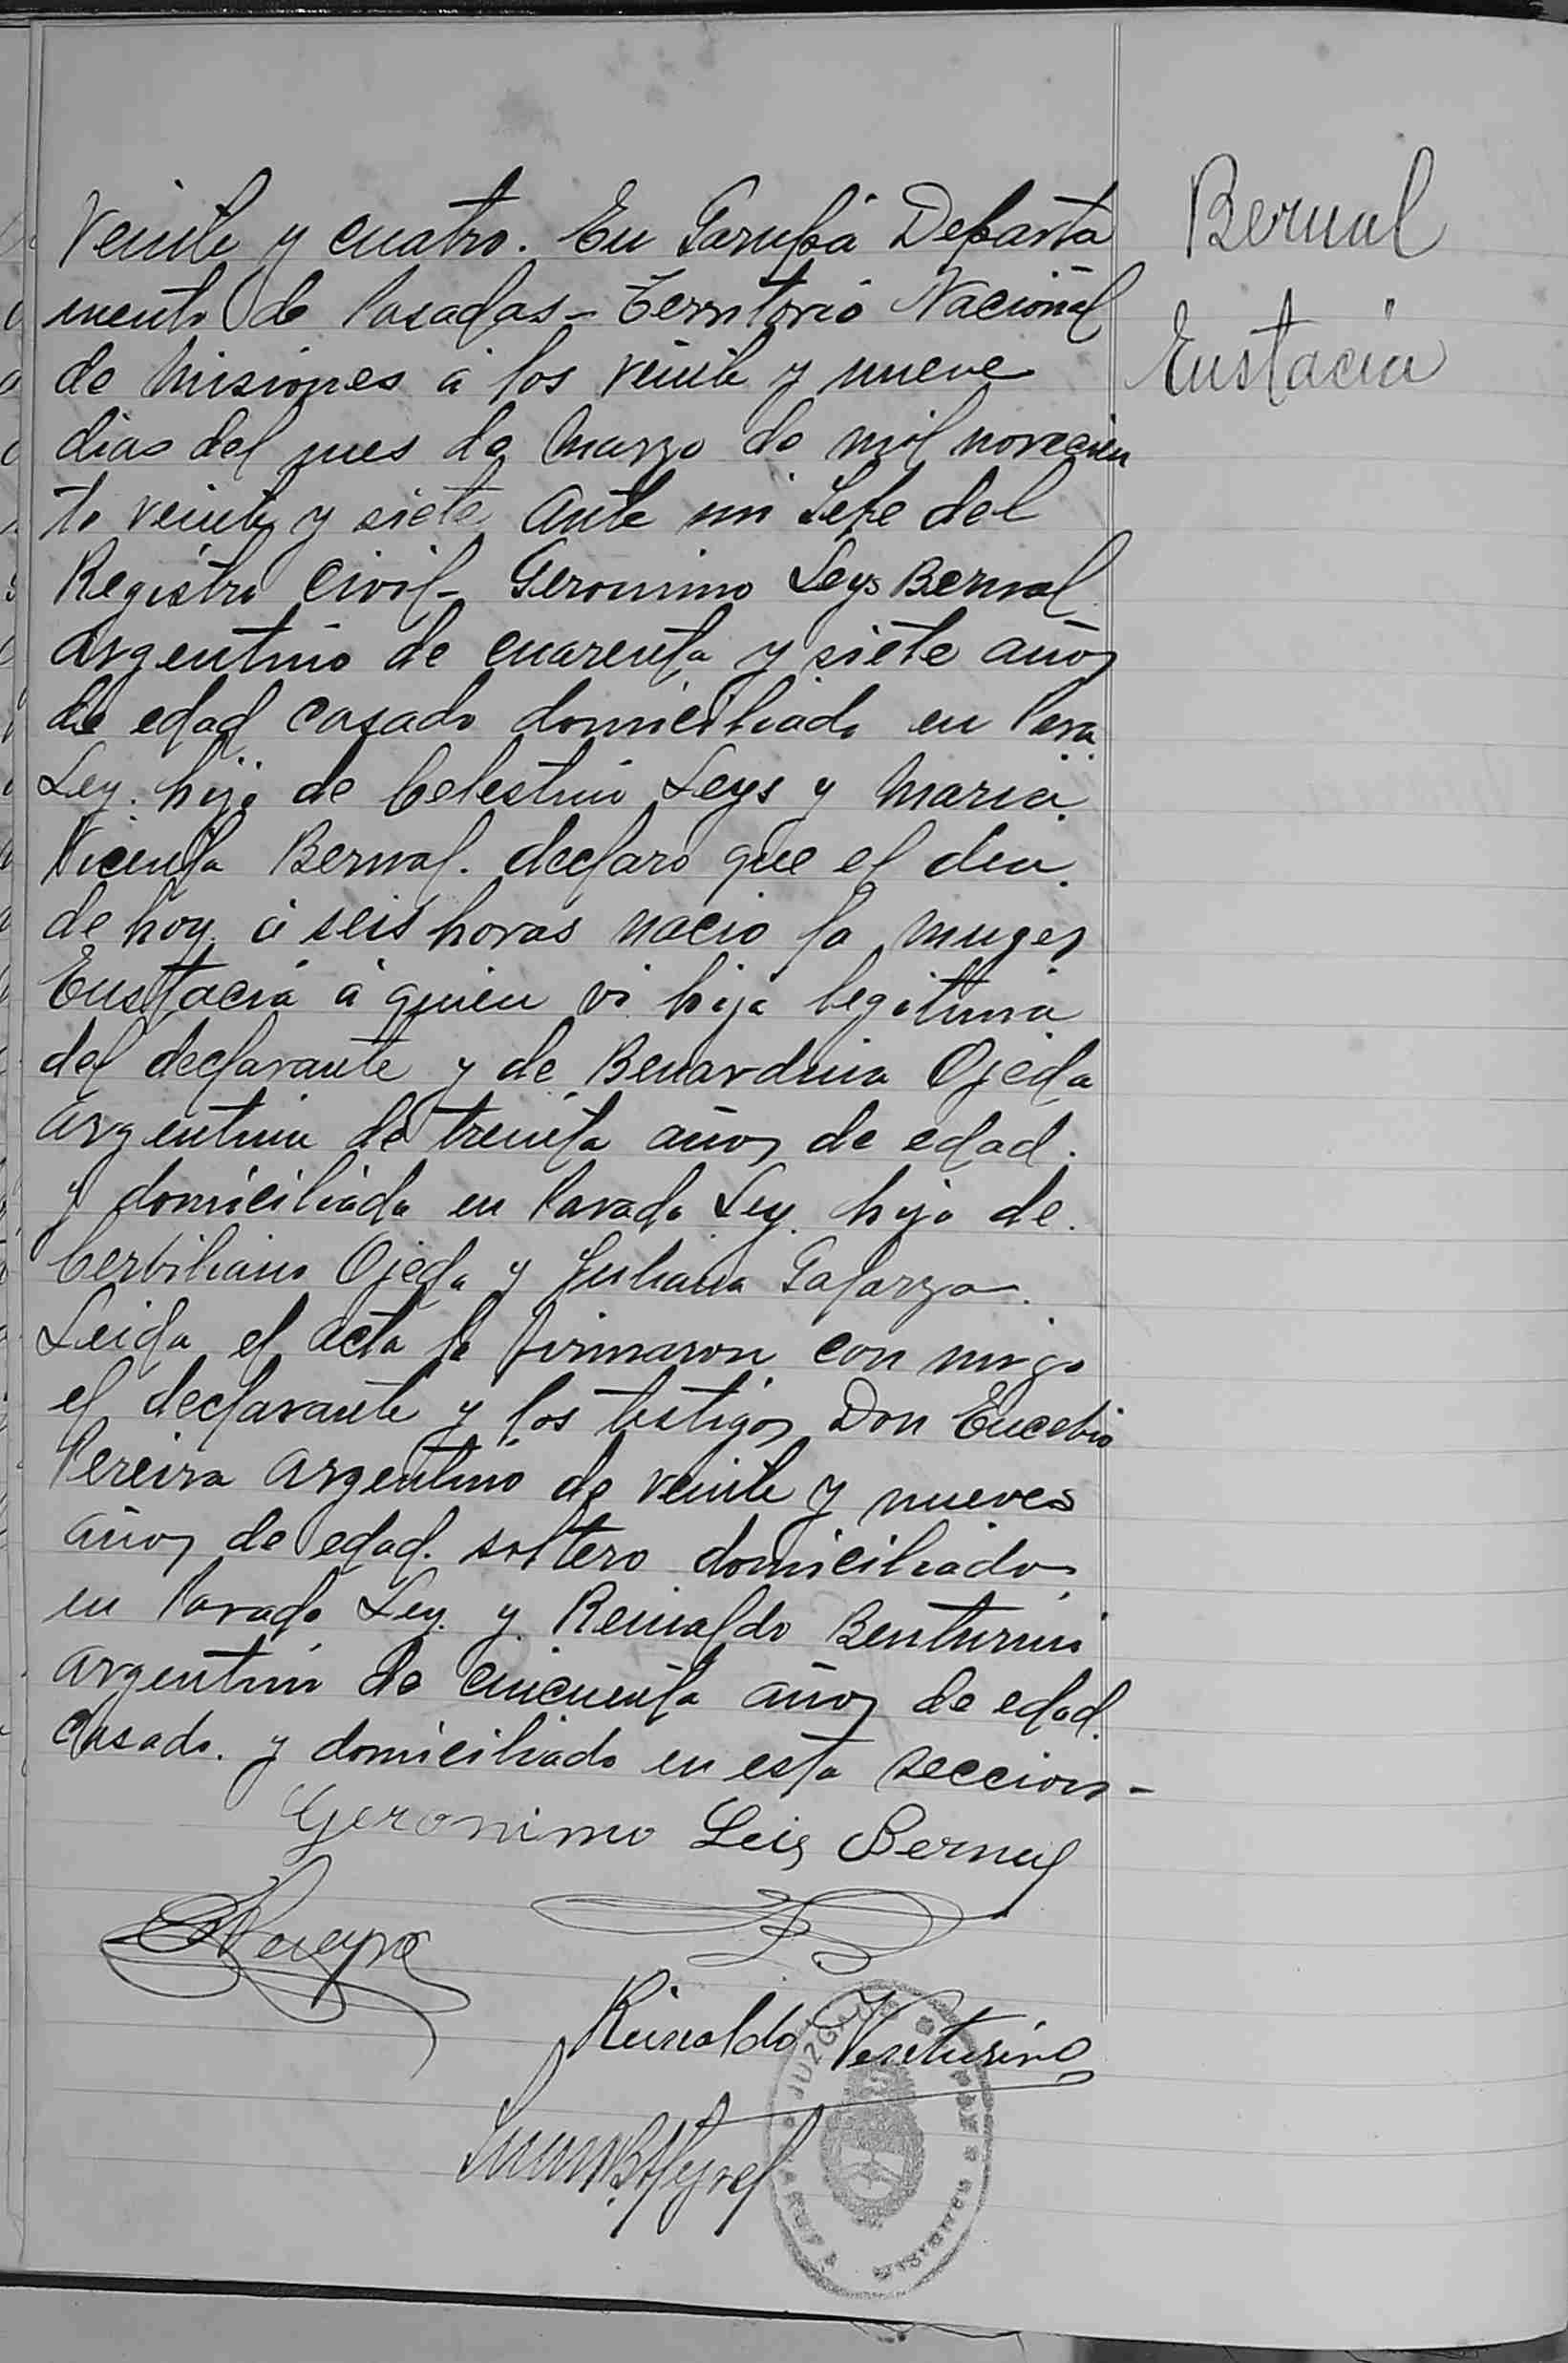 Bernal
Eustacia
Veinte y cuatro. En Garupá Departa
mento de Posadas - Territorio Nacional
de Misiones á los veinte y nueve
dias del mes de Marzo de mil novecien
to veinte y siete Ante mi Jefe del
Registro Civil - Geronimo Leys Bernal
argentino de cuarenta y siete años
de edad casado domiciliado en Para
Ley. hijo de Celestino Leys y Maria
Vicenta Bernal. declaro que el dia
de hoy á seis horas nacio la muger
Eustacia á quien vi hija legitima
del declarante y de Benardina Ojeda
argentina de treinta años de edad.
y domiciliada en Parada Ley. hija de
Ojeda y Juliana Galarza.
Leida el acta la firmaron con migo
el declarante y los testigos Don Eucebio
Pereira argentino de veinte y nueves
años de edad. soltero domiciliado
en Parada Ley. y Reinaldo Benturini
argentino de cincuenta años de edad
casado. y domiciliado en esta seccion -
Geronimo Leis Bernal
Pereyra
Reinaldo Venturino
JUZGADO
GARUPA
MISIONES